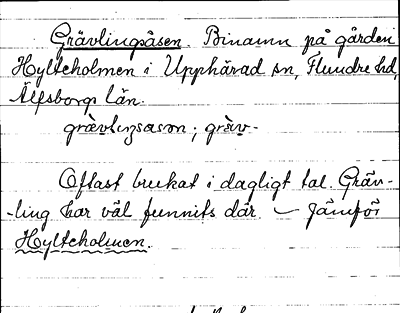 Grävlingsåsen. Binamn på gården
Hylteholmen i Upphärad sn, Flundre hd,
Älfsborgs län.
grævlıŋsåsən; græv-
Oftast brukat i dagligt tal. Gräv-
-ling har väl funnits där. — Jämför
Hylteholmen.